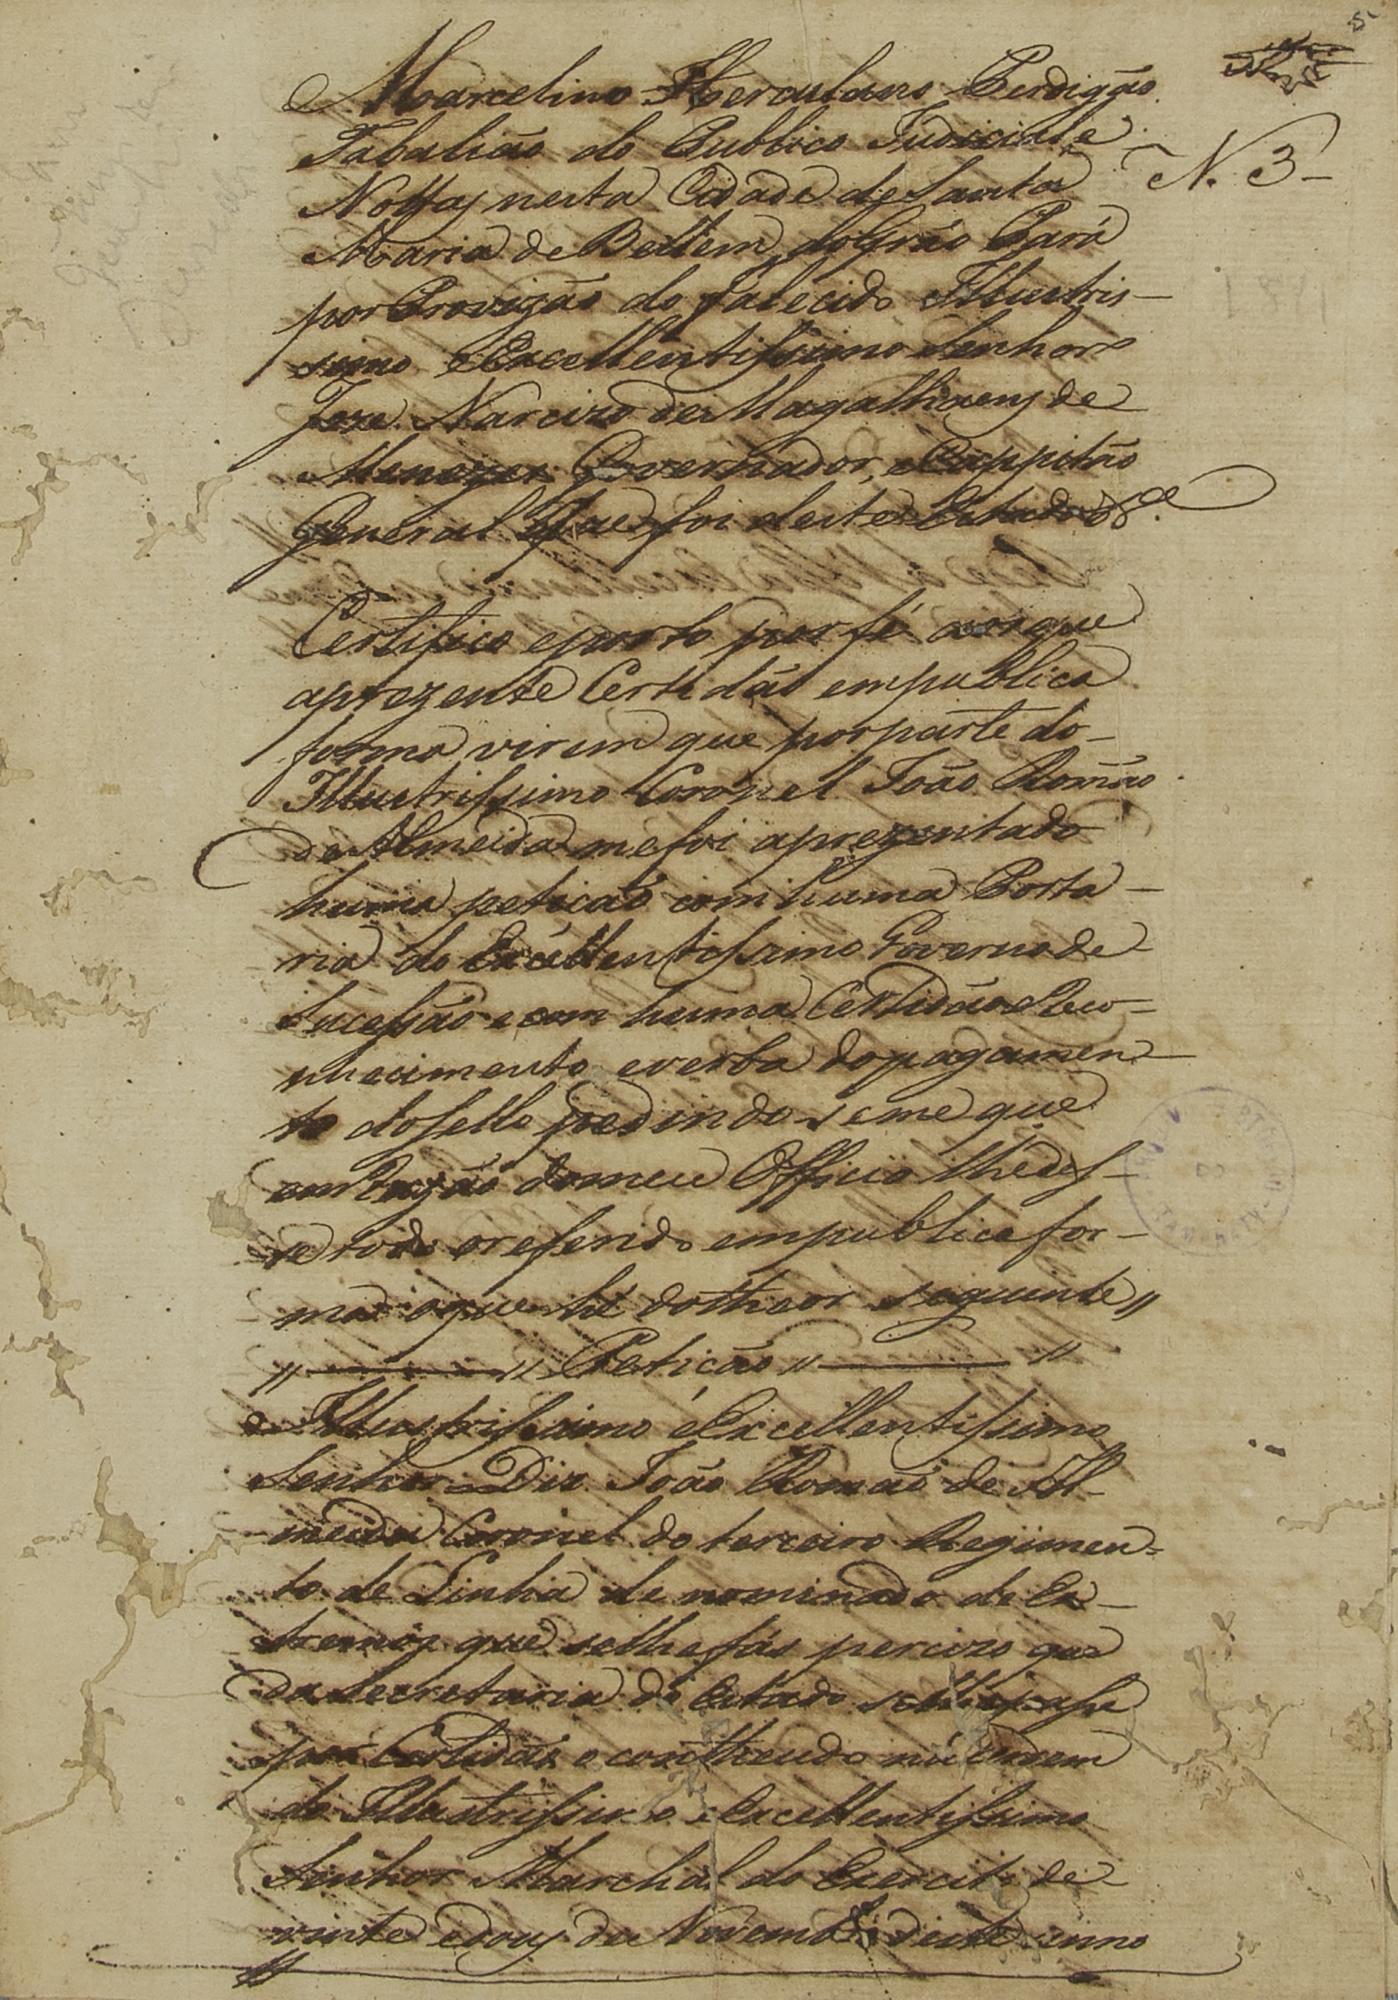 5
Marcelino Herculano Perdigão
Tabaliáo do Publico Judicial e
N. 3
Nottas nesta Cidade de Santa
Maria de Bellem do Gráo Pará
por Provizáo do falecido Illustris-
simo e Excellentissimo Senhor
Joze Narcizo de Magalhaens de
Menezes Governador, e Cappitáo
General que foi deste Estado &ª
Certifico e porto por fé aos que
a prezente Certidáo em publica
forma virem que por parte do
Illustrissimo Coronel Joáo Romáo
de Almeida me foi aprezentado
huma peticáo com huma Porta-
ria do Excellentissimo Governo de
Sucessáo e com huma Certidáo Reco-
nhecimento e verba do pagamen-
to do sello pedindo-se me que
em Razáo do meu Officio lhe des-
se todo o referido em publica for-
ma o que hé do theor seguinte //
// ——— // Peticáo // ——— //
Illustrissimo e Excellentissimo
Senhor Diz Joáo Romáo de Al-
meida Coronel do terceiro Regimen-
to de Linha denominado de Ex-
tremóz que se lhe fás percizo que
da Secretaria do Estado se lhe passe
por Certidáo o contheudo na ordem
do Illustrissimo e Excellentissimo
Senhor Marechal do Exercito de
vinte e dous de Novembro deste anno